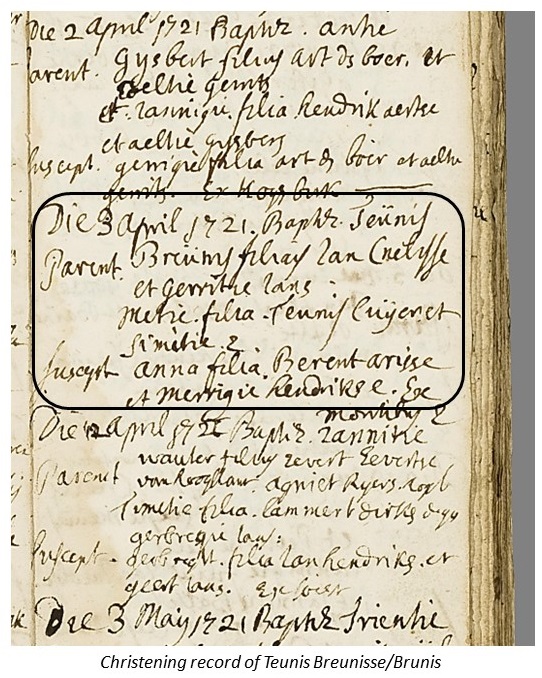 Die 2 April 1721 Baptiz. anhe
arent. Gysbert filius art ds boer. et
aeltie gerrits
et. Jannigie. filia hendrik aertse
et aeltie gysbers
suscept. gerrigie filia art ds boer et aeltie
gerrits. Ex
Die 3 April 1721. Baptiz. Teunis
Parent. Breunis filius Jan Cnelisse
et gerritie Jans
Metie. filia. Teunis Cuyer et
Simitie.
suscept anna filia. Berent arisse
et Merrigie hendrikse. Ex
Die 12 April 1721 Baptiz. Jannitie
Parent wouter filius evert Evertse
agniet Ryers
filia. lammert dirks
gerbregie Jans.
suscept. geobregt. filia Jan hendriks. et
geert Jans. Ex soest
Die 3 May 1721 Baptiz Trientie
Christening record of Teunis Breunisse/Brunis